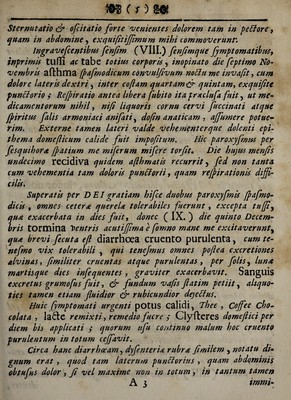 (5)
Sternutatio & oscitatio forte venientes dolorem tam in pectore,
quam in abdomine, exquisitissimum mihi commoverunt.
Ingravescentibus sensim (VIII.) sensimque symptomatibus,
inprimis tussi ac tabe totius corporis, inopinato die septimo No-
vembris asthma spasmodicum convulsivum noctu me invasit, cum
dolore lateris dextri, inter costam quartam & quintam, exquisite
punctorio; Respiratio antea libera subito ita præclusa fuit, ut me-
dicamentorum nihil, nisi liquoris cornu cervi succinati atque
spiritus salis armoniaci anisati, dosin anaticam, assumere potue-
rim. Externe tamen lateri valde vehementerque dolenti epi-
thema domesticum calide fuit impositum. Hic paroxysmus per
sesquihoræ spatium me miserum misere torsit. Die hujus mensis
undecimo recidiva quidem asthmatis recurrit, sed non tanta
cum vehementia tam doloris punctorii, quam respirationis diffi-
cilis.
Superatis per DEI gratiam hisce duobus paroxysmis spasmo-
dicis, omnes ceteræ querelæ tolerabiles fuerunt, excepta tussi,
quæ exacerbata in dies fuit, donec (IX.) die quinto Decem-
bris tormina ventris acutissima e somno mane me excitaverunt,
quæ brevi secuta est diarrhœa cruento purulenta, cum te-
nesmo vix tolerabili, qui tenesmus omnes postea excretiones
alvinas, similiter cruentas atque purulentas, per solis, lunæ
martisque dies insequentes, graviter exacerbavit. Sanguis
excretus grumosus fuit, & fundum vasis statim petiit, aliquo-
ties tamen etiam fluidior & rubicundior dejectus.
Huic symptomati urgenti potus calidi, Thee, Coffee Cho-
colata, lacte remixti, remedio fuere; Clysteres domestici per
diem bis applicati; quorum usu continuo malum hoc cruento
purulentum in totum cessavit.
Circa hanc diarrhœam, dysenteriæ rubræ similem, notatu di-
gnum erat, quod tam laterum punctorius, quam abdominis
obtusus dolor, si vel maxime non in totum, in tantum tamen
A 3 immi-